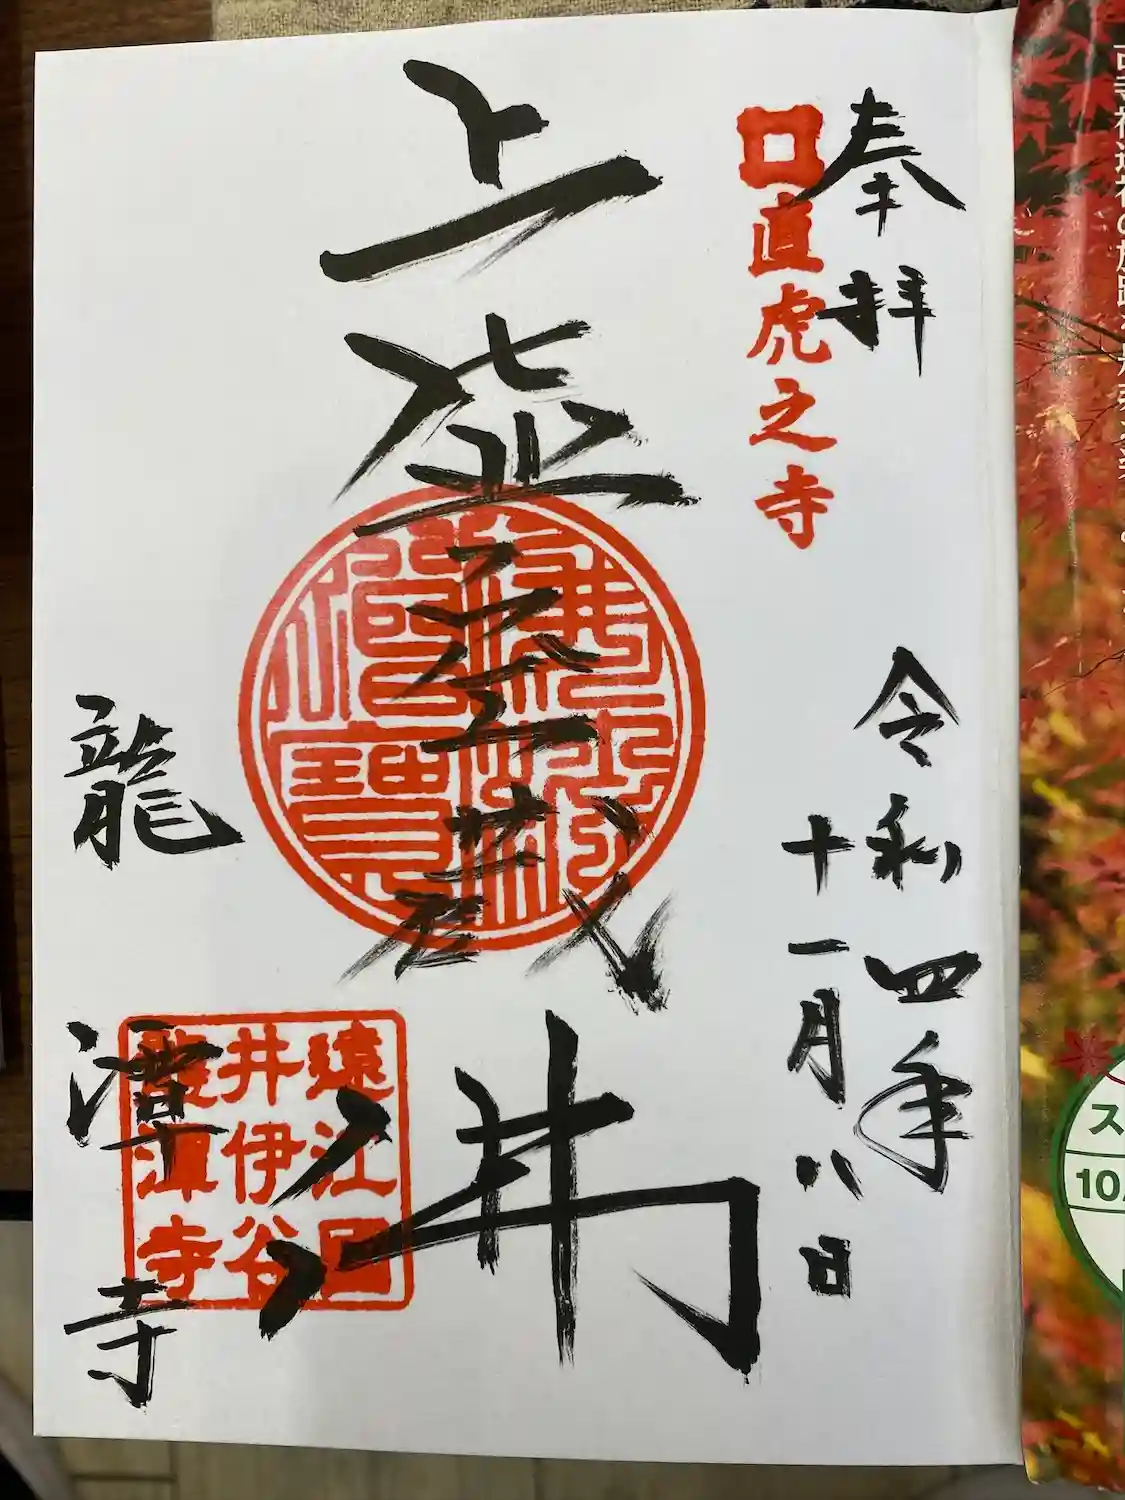 奉拝
直虎之寺
令和四年
十一月八日
上虚空蔵井
佛法僧寶
遠江國
井伊谷
龍潭寺
龍潭寺
ス
10